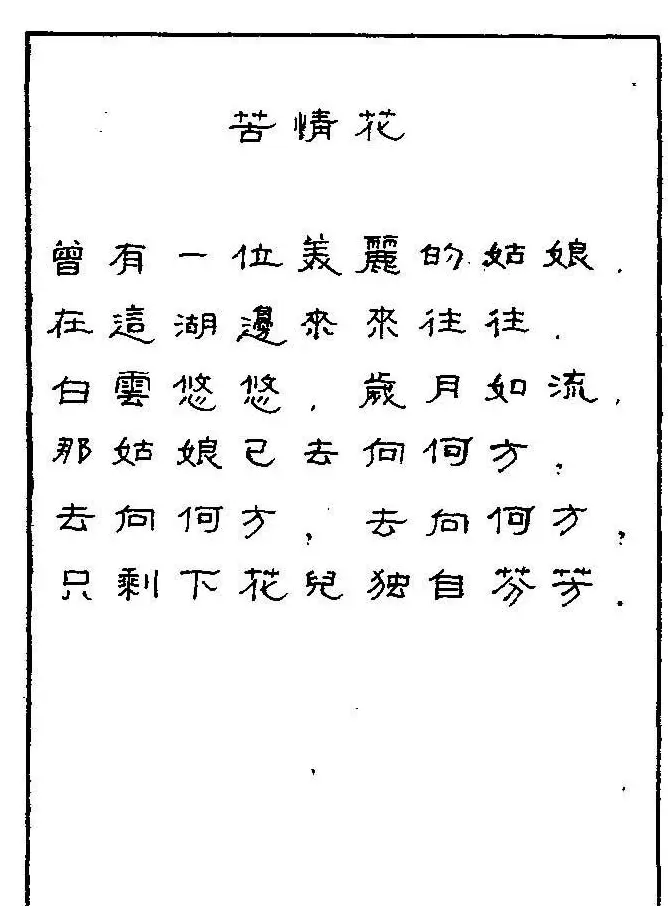 苦情花
曾有一位美麗的姑娘.
在這湖邊來來往往.
白雲悠悠.歲月如流.
那姑娘已去向何方?
去向何方?去向何方?
只剩下花兒独自芬芳.